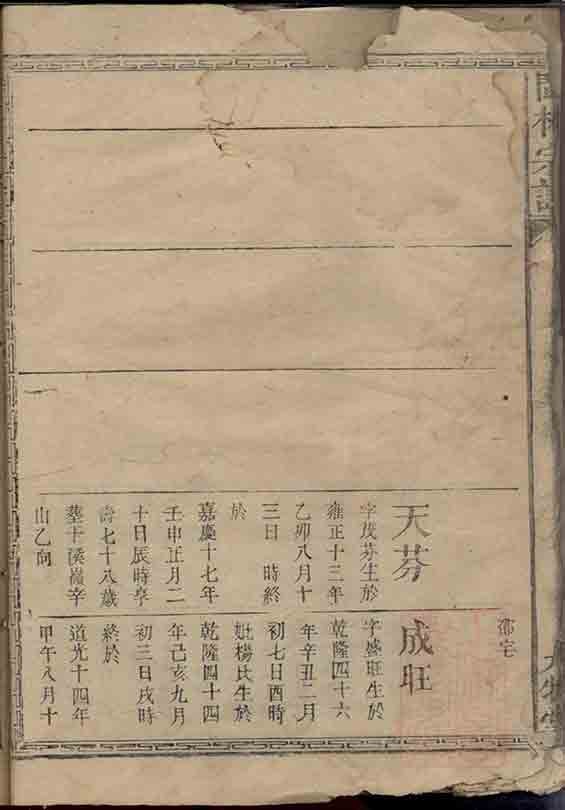 宗譜
邵宅
天芬
字茂芬生於
雍正十三年
乙卯八月十
三日 時終
於
嘉慶十七年
壬申正月二
十日辰時享
壽七十八歲
塟于溪嶺辛
山乙向
成旺
字盛旺生於
乾隆四十六
年辛丑二月
初七日酉時
妣楊氏生於
乾隆四十四
年己亥九月
初三日戌時
終於
道光十四年
甲午八月十